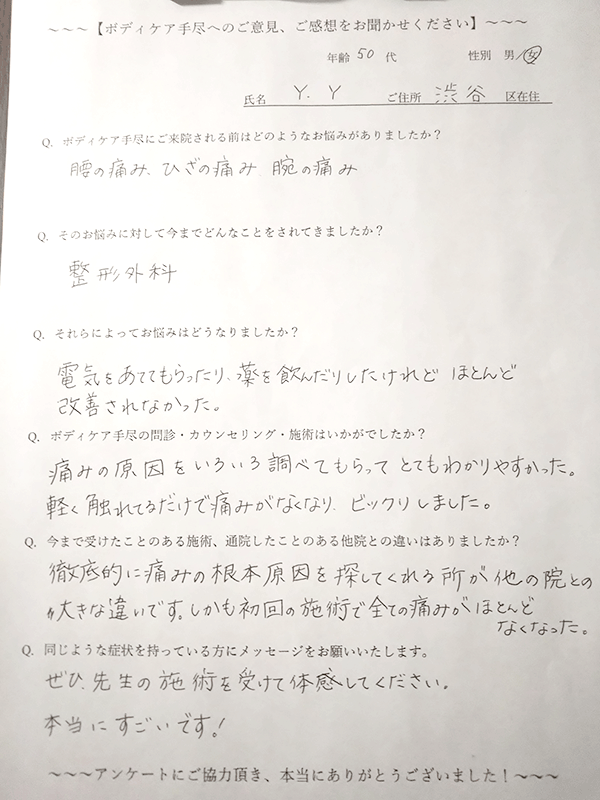 ～～～【ボディケア手尽へのご意見、ご感想をお聞かせください】～～～
年齢 50 代 性別 男/女
氏名 Y.Y ご住所 渋谷 区在住
Q. ボディケア手尽にご来院される前はどのようなお悩みがありましたか？
腰の痛み、ひざの痛み、腕の痛み
Q. そのお悩みに対して今までどんなことをされてきましたか？
整形外科
Q. それらによってお悩みはどうなりましたか？
電気をあててもらったり、薬を飲んだりしたけれど ほとんど
改善されなかった。
Q. ボディケア手尽の問診・カウンセリング・施術はいかがでしたか？
痛みの原因をいろいろ調べてもらって とてもわかりやすかった。
軽く触れてるだけで痛みがなくなり、ビックリしました。
Q. 今まで受けたことのある施術、通院したことのある他院との違いはありましたか？
徹底的に痛みの根本原因を探してくれる所が他の院との
大きな違いです。しかも初回の施術で全ての痛みがほとんど
なくなった。
Q. 同じような症状を持っている方にメッセージをお願いいたします。
ぜひ、先生の施術を受けて体感してください。
本当にすごいです！
～～～アンケートにご協力頂き、本当にありがとうございました！～～～